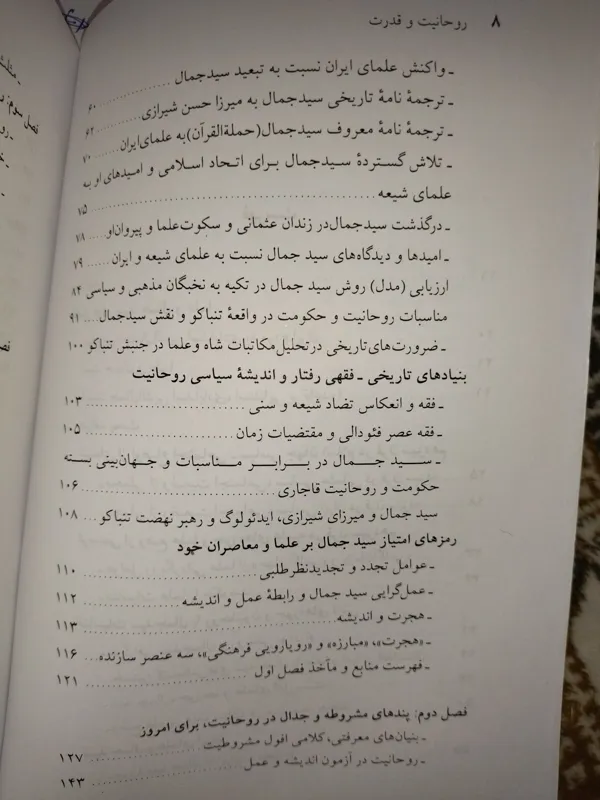 ۸ روحانیت و قدرت
ـ واکنش علمای ایران نسبت به تبعید سیدجمال ۶۰
ـ ترجمهٔ نامهٔ تاریخی سیدجمال به میرزا حسن شیرازی ۶۲
ـ ترجمهٔ نامهٔ معروف سیدجمال(حملةالقرآن)به علمای‌ایران ۷۰
ـ تلاش گستردهٔ سیدجمال برای اتحاد اسلامی و امیدهای او به
علمای شیعه ۷۵
ـ درگذشت سیدجمال‌در زندان عثمانی و سکوت‌علما و پیروان‌او ۷۸
ـ امیدها و دیدگاه‌های سید جمال نسبت به علمای شیعه و ایران ۷۹
ارزیابی (مدل) روش سید جمال در تکیه به نخبگان مذهبی و سیاسی ۸۴
مناسبات روحانیت و حکومت در واقعهٔ تنباکو و نقش سیدجمال ۹۱
ـ ضرورت‌های‌تاریخی در‌تحلیل‌مکاتبات شاه وعلما در جنبش تنباکو ۱۰۰
بنیادهای تاریخی ـ فقهی رفتار و اندیشهٔ سیاسی روحانیت
ـ فقه و انعکاس تضاد شیعه و سنی ۱۰۳
ـ فقه عصر فئودالی و مقتضیات زمان ۱۰۵
ـ سید جمال در برابر مناسبات و جهان‌بینی بسته
حکومت و روحانیت قاجاری ۱۰۶
سید جمال و میرزای شیرازی، ایدئولوگ و رهبر نهضت تنباکو ۱۰۸
رمزهای امتیاز سید جمال بر علما و معاصران خود
ـ عوامل تجدد و تجدیدنظرطلبی ۱۱۰
ـ عمل‌گرایی سید جمال و رابطهٔ عمل و اندیشه ۱۱۲
ـ هجرت و اندیشه ۱۱۳
ـ «هجرت»، «مبارزه» و «رویارویی فرهنگی»، سه عنصر سازنده ۱۱۶
ـ فهرست منابع و مآخذ فصل اول ۱۲۱
فصل دوم: پندهای مشروطه و جدال در روحانیت، برای امروز
ـ بنیان‌های معرفتی، کلامی افول مشروطیت ۱۲۷
ـ روحانیت در آزمون اندیشه و عمل ۱۴۳